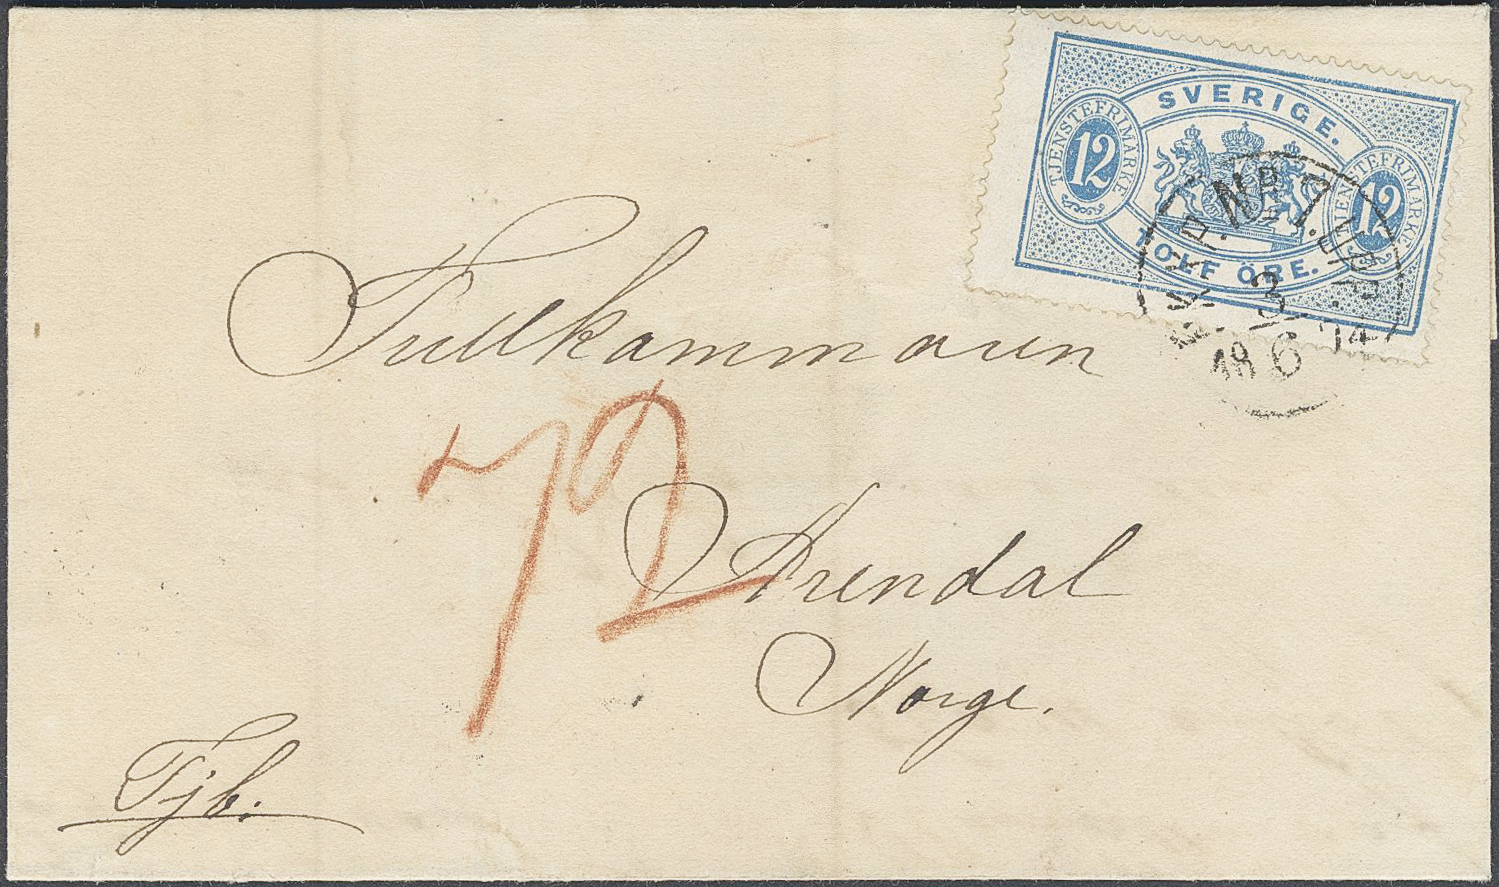 SVERIGE.
TJENSTEFRIMÄRKE
12
TJENSTEFRIMÄRKE
12
TOLF ÖRE.
No 1.
UPP.
3
18 6 74
Tullkammaren
72
Arendal
Norge.
Tjb: